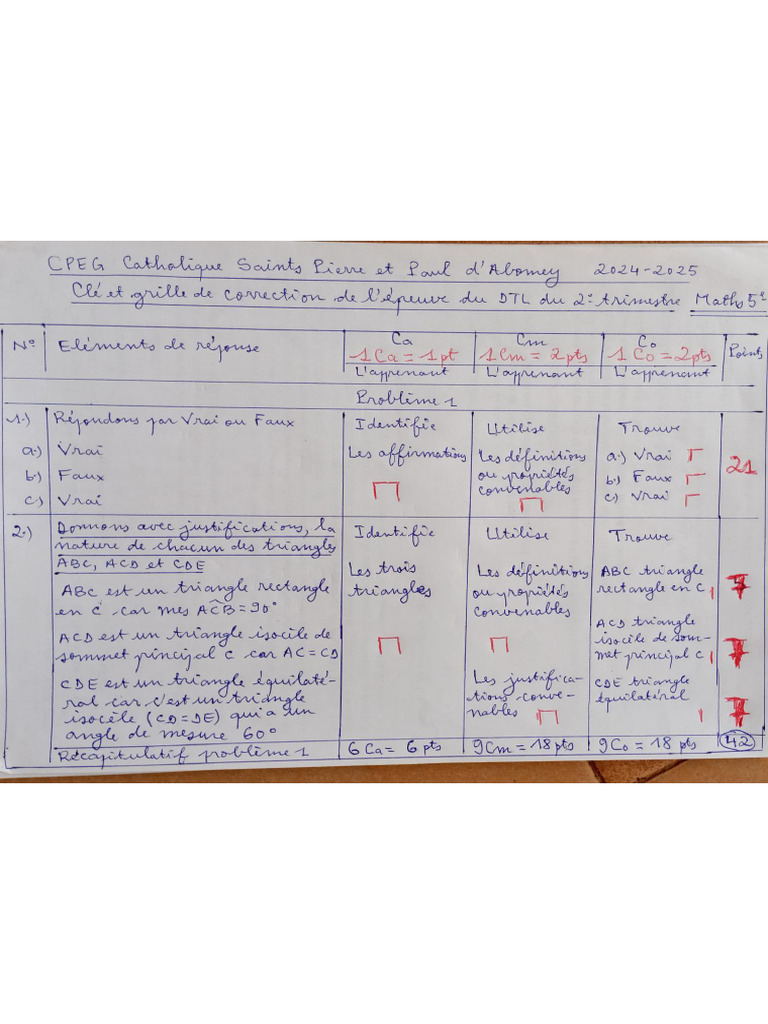 CPEG Catholique Saints Pierre et Paul d'Abomey 2024-2025
Clé et grille de correction de l'épeuve du DTL du 2e trimestre Maths 5e
N° Eléments de réponse
Ca
1Ca = 1pt
L'apprenant
Cm
1Cm = 2pts
L'apprenant
Co
1Co = 2pts
L'apprenant
Points
Problème 1
1.) Répondons par Vrai ou Faux
a.) Vrai
b.) Faux
c.) Vrai
Identifie
Les affirmations
Utilise
Les définitions
ou propriétés
convenables
Trouve
a.) Vrai
b.) Faux
c.) Vrai
21
2.) Donnons avec justifications, la
nature de chacun des triangles
ABC, ACD et CDE
ABC est un triangle rectangle
en C car mes ACB = 90°
ACD est un triangle isocèle de
sommet principal C car AC = CD
CDE est un triangle équilaté-
ral car c'est un triangle
isocèle (CD = DE) qui a un
angle de mesure 60°
Identifie
Les trois
triangles
Utilise
Les définitions
ou propriétés
convenables
Les justifica-
tions conve-
nables
Trouve
ABC triangle
rectangle en C 1
ACD triangle
isocile de som-
met principal C 1
CDE triangle
équilatéral
1
7
7
7
Récapitulatif problème 1
6Ca = 6pts
9Cm = 18pts
9Co = 18pts
42